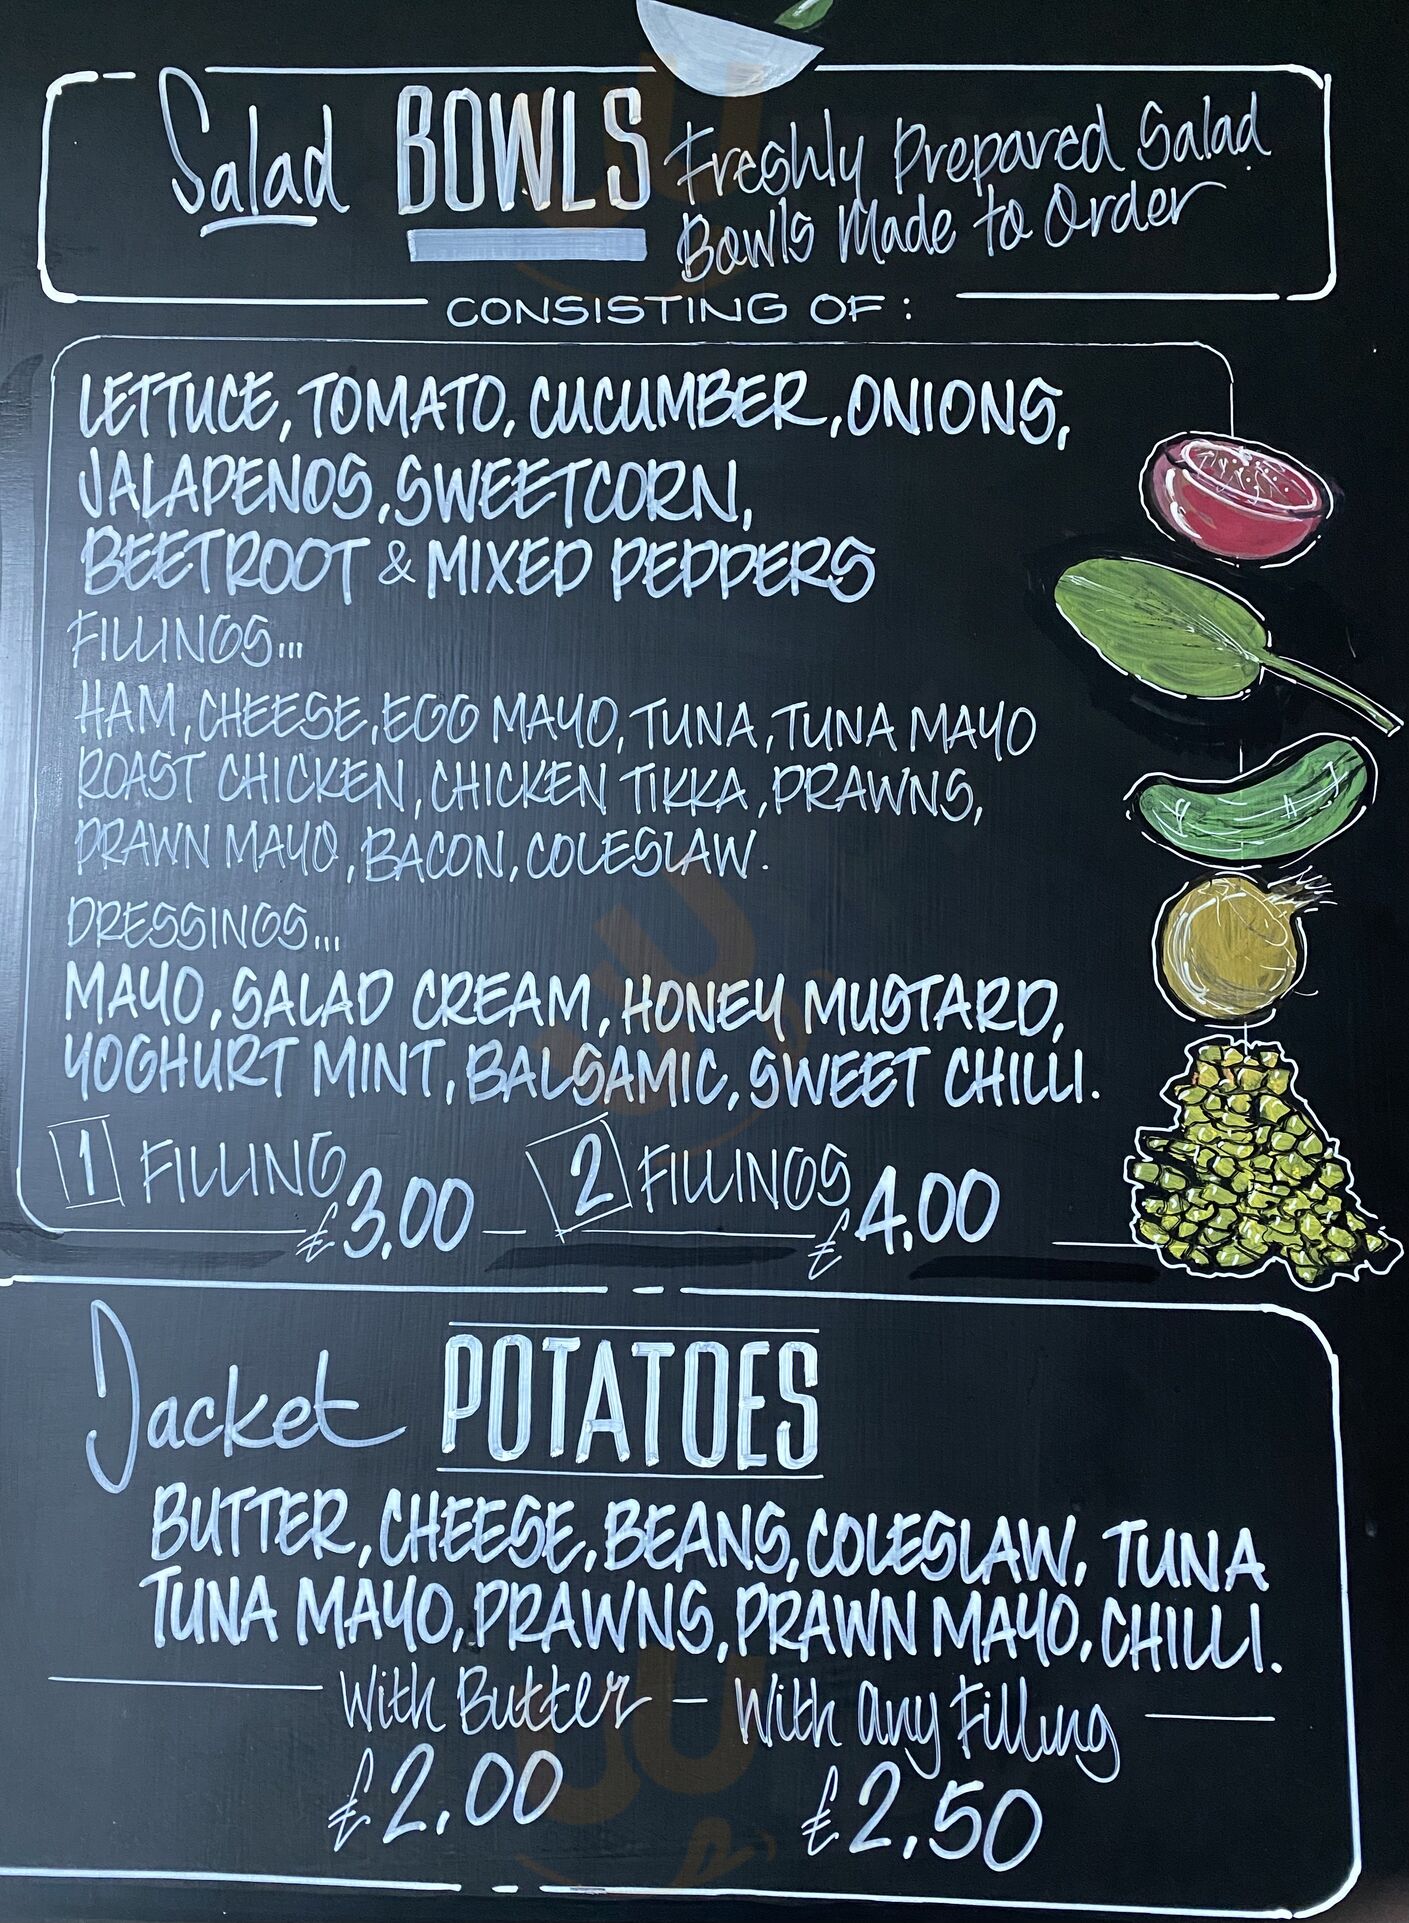 Salad BOWLS Freshly Prepared Salad
Bowls Made to Order
CONSISTING OF:
LETTUCE, TOMATO, CUCUMBER, ONIONS,
JALAPENOS, SWEETCORN,
BEETROOT & MIXED PEPPERS
FILLINGS...
HAM, CHEESE, EGG MAYO, TUNA, TUNA MAYO
ROAST CHICKEN, CHICKEN TIKKA, PRAWNS,
PRAWN MAYO, BACON, COLESLAW.
DRESSINGS...
MAYO, SALAD CREAM, HONEY MUSTARD,
YOGHURT MINT, BALSAMIC, SWEET CHILLI.
1 FILLING £3.00 2 FILLINGS £4.00
Jacket POTATOES
BUTTER, CHEESE, BEANS, COLESLAW, TUNA
TUNA MAYO, PRAWNS, PRAWN MAYO, CHILLI.
With Butter - With any Filling
£2.00 £2.50